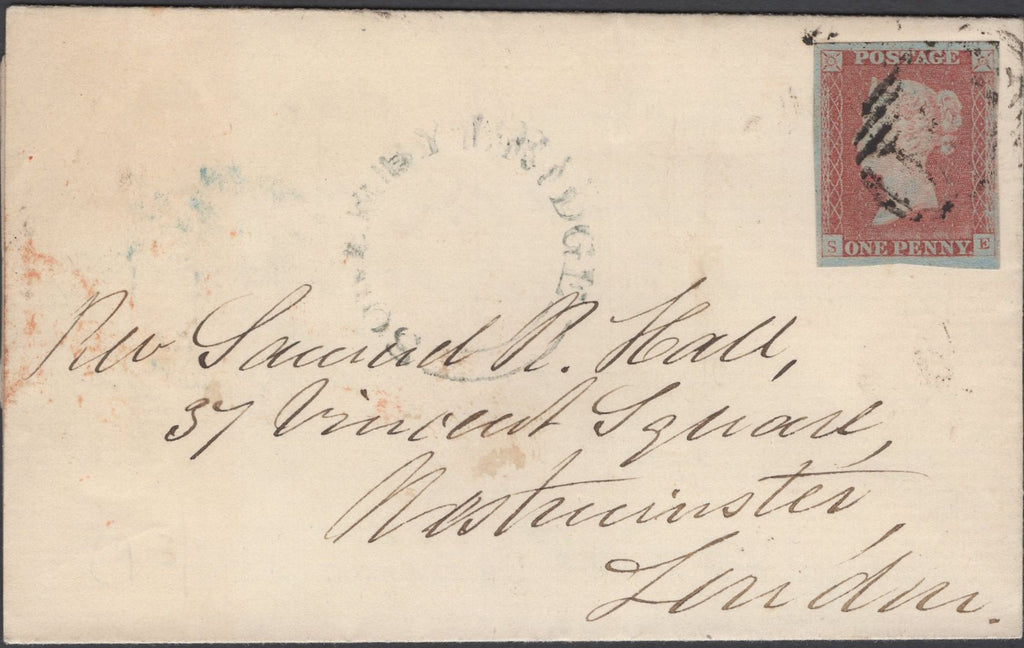 POSTAGE
S ONE PENNY E
SOWERBY BRIDGE
Rev Samuel R. Hall,
37 Vincent Square,
Westminster,
London.